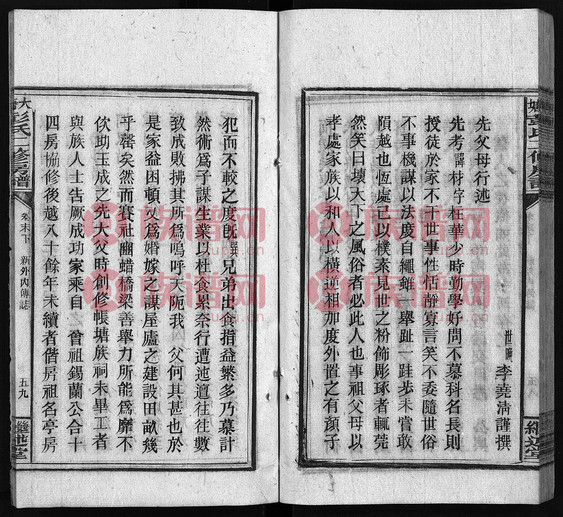 先父母行述
世 李堯淸謹撰
先考 材字桂華少時勤學好問不慕科名長則
授徒於家不干世事性恬澹寡言笑不委隨世俗
事不機謀以法度自繩雖一舉趾一跬步未嘗敢
隕越也恆處己以樸素見世之粉飾彫琢者輒莞
然笑曰壞天下之風俗者必此人也事祖父母以
孝處家族以和人有以橫逆相加度外置之有顏子
犯而不較之度旣 兄弟出食指益繁多乃慕計
然術爲子謀生業以杜食累奈行遭迍邅往往數
致成敗拂其所爲嗚呼天阨我 父何其甚也於
是家益困頓又爲婚嫁之謀屋廬之建設田畝幾
乎罄矣然而賽社 蜡橋梁善舉力所能爲靡不
佽助玉成之先大父時創修帳塘族祠未畢工者
與族人士告厥成功家乘自 曾祖錫蘭公合十
四房協修後越八十餘年未續者偕房祖名亭房
彭氏二修房譜
卷末下 新外內傳誌
五九
繼述堂